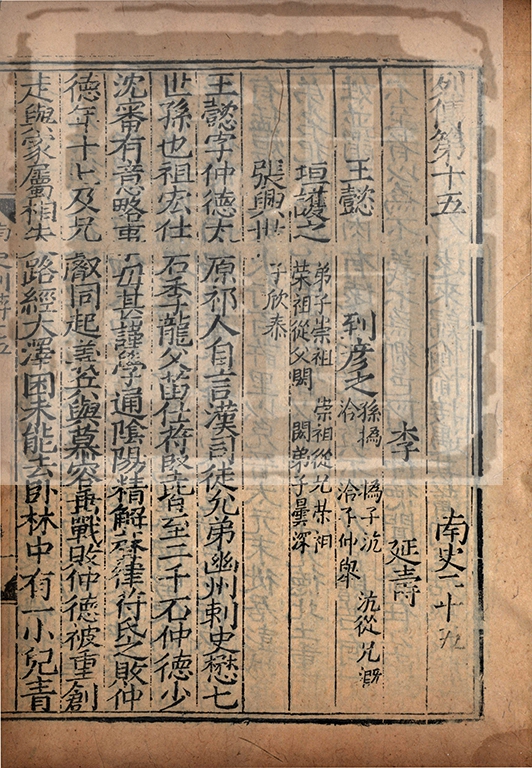 列傳第十五 南史二十
李延壽
王懿 到彥之 孫撝 撝子沆 沆從兄溉 洽 洽子仲舉
垣護之 弟子崇祖 崇祖從兄榮祖 榮祖從父閎 閎弟子曇深
張興世 子欣泰
王懿字仲德太原祁人自言漢司徒允弟幽州刺史懋七
世孫也祖宏仕石季龍父苗仕苻堅皆至二千石仲德少
沈審有意略事母甚謹學通陰陽精解聲律苻氏之敗仲
德年十七及兄叡同起義兵與慕容垂戰敗仲德被重創
走與家屬相失路經大澤困未能去卧林中有一小兒青